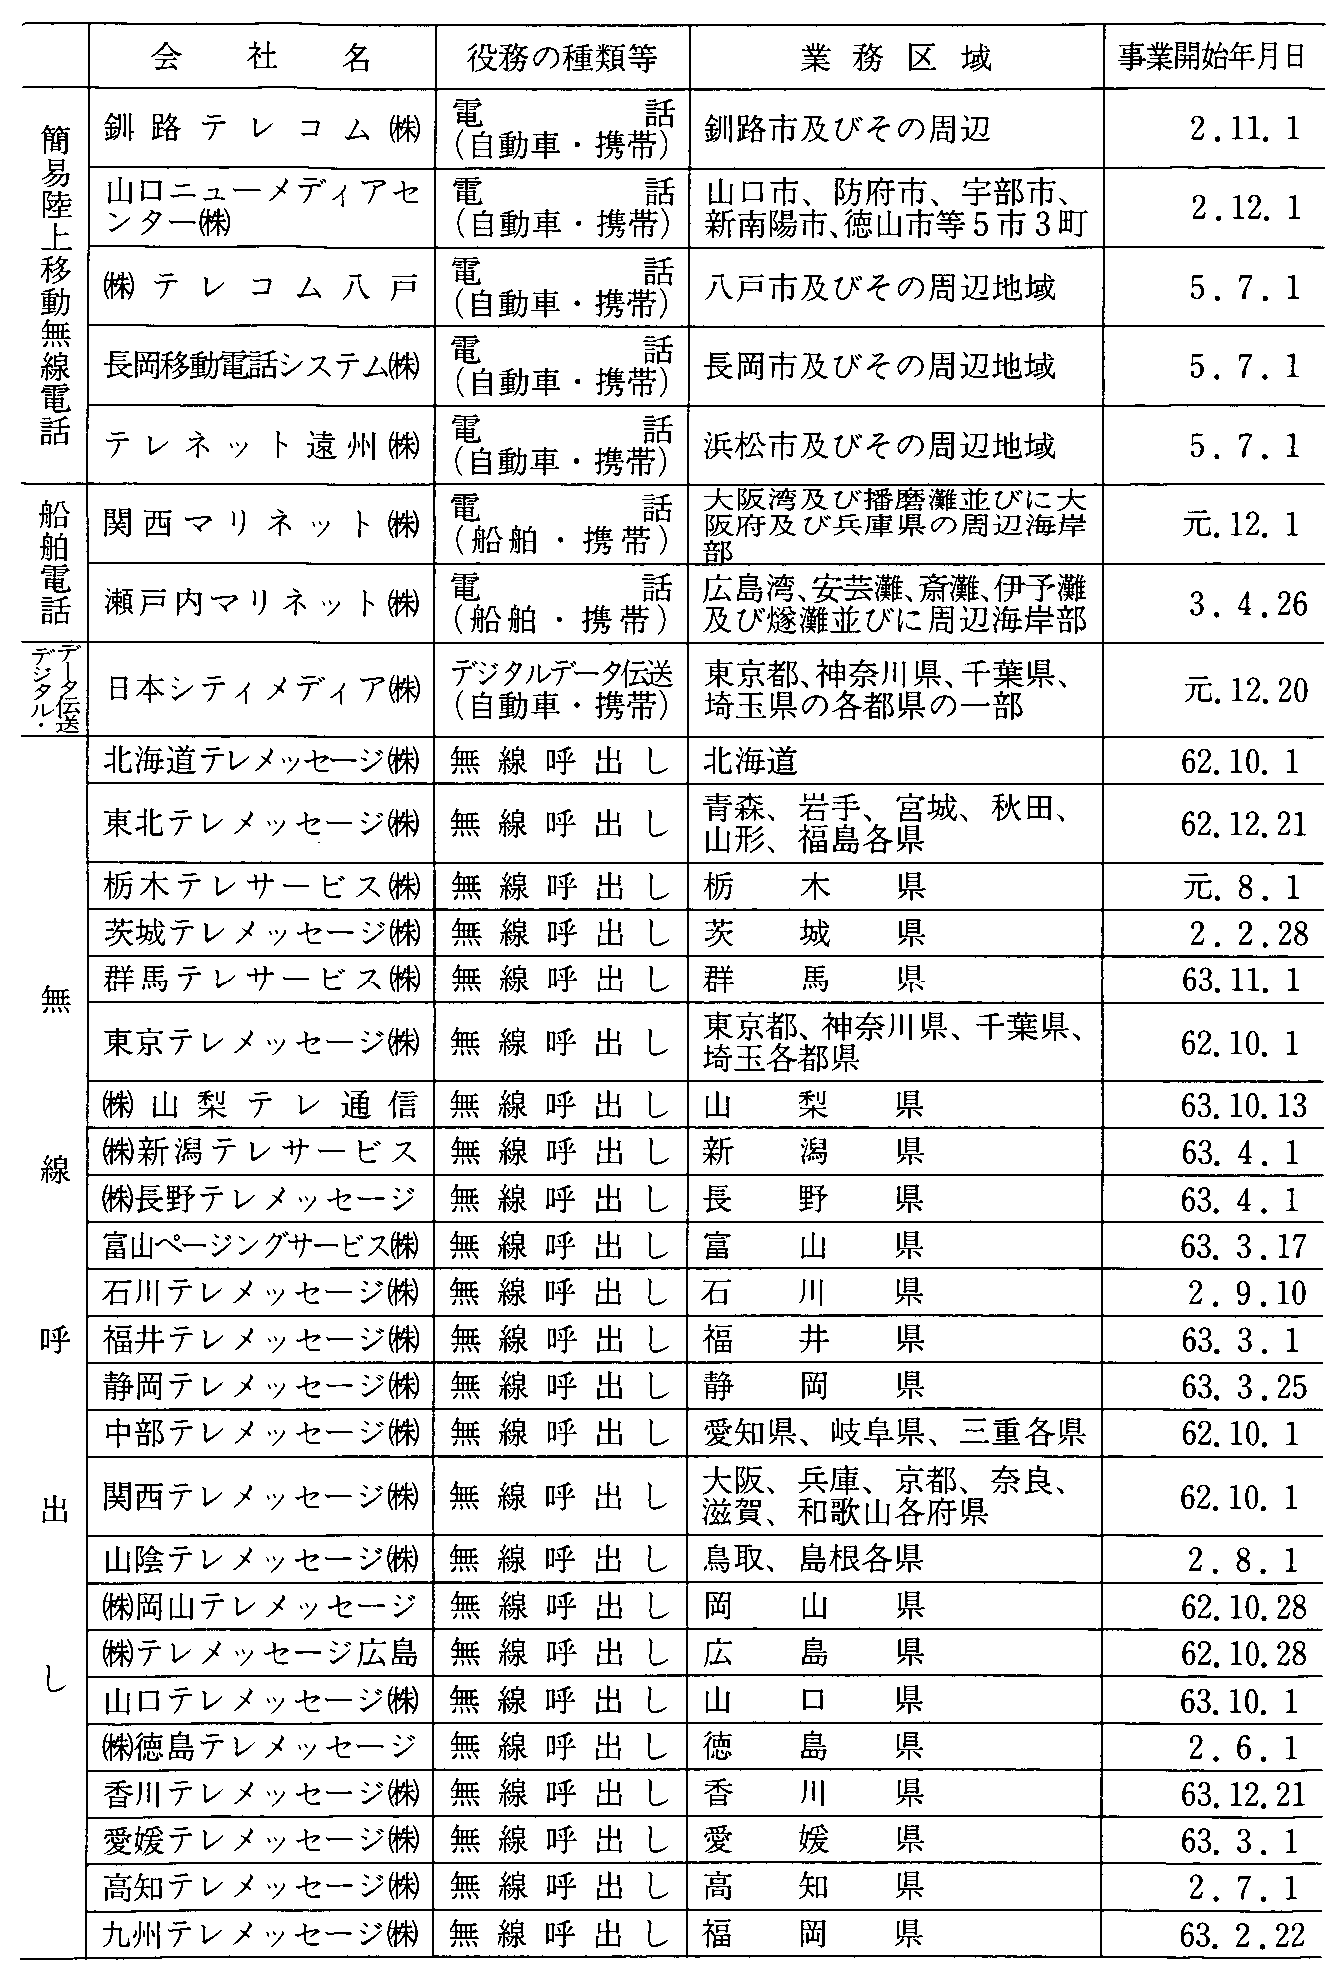 会社名 役務の種類等 業務区域 事業開始年月日
簡易陸上移動無線電話
釧路テレコム㈱ 電話 釧路市及びその周辺 2.11. 1
(自動車・携帯)
山口ニューメディアセ 電話 山口市、防府市、宇部市、 2.12. 1
ンター㈱ (自動車・携帯) 新南陽市、徳山市等5市3町
㈱テレコム八戸 電話 八戸市及びその周辺地域 5. 7. 1
(自動車・携帯)
長岡移動電話システム㈱ 電話 長岡市及びその周辺地域 5. 7. 1
(自動車・携帯)
テレネット遠州㈱ 電話 浜松市及びその周辺地域 5. 7. 1
(自動車・携帯)
船舶電話
関西マリネット㈱ 電話 大阪湾及び播磨灘並びに大 元.12. 1
(船舶・携帯) 阪府及び兵庫県の周辺海岸
部
瀬戸内マリネット㈱ 電話 広島湾、安芸灘、斎灘、伊予灘 3. 4.26
(船舶・携帯) 及び燧灘並びに周辺海岸部
デジタル・
データ伝送
日本シティメディア㈱ デジタルデータ伝送 東京都、神奈川県、千葉県、 元.12.20
(自動車・携帯) 埼玉県の各都県の一部
無線呼出し
北海道テレメッセージ㈱ 無線呼出し 北海道 62.10. 1
東北テレメッセージ㈱ 無線呼出し 青森、岩手、宮城、秋田、 62.12.21
山形、福島各県
栃木テレサービス㈱ 無線呼出し 栃木県 元. 8. 1
茨城テレメッセージ㈱ 無線呼出し 茨城県 2. 2.28
群馬テレサービス㈱ 無線呼出し 群馬県 63.11. 1
東京テレメッセージ㈱ 無線呼出し 東京都、神奈川県、千葉県、 62.10. 1
埼玉各都県
㈱山梨テレ通信 無線呼出し 山梨県 63.10.13
㈱新潟テレサービス 無線呼出し 新潟県 63. 4. 1
㈱長野テレメッセージ 無線呼出し 長野県 63. 4. 1
富山ページングサービス㈱ 無線呼出し 富山県 63. 3.17
石川テレメッセージ㈱ 無線呼出し 石川県 2. 9.10
福井テレメッセージ㈱ 無線呼出し 福井県 63. 3. 1
静岡テレメッセージ㈱ 無線呼出し 静岡県 63. 3.25
中部テレメッセージ㈱ 無線呼出し 愛知県、岐阜県、三重各県 62.10. 1
関西テレメッセージ㈱ 無線呼出し 大阪、兵庫、京都、奈良、 62.10. 1
滋賀、和歌山各府県
山陰テレメッセージ㈱ 無線呼出し 鳥取、島根各県 2. 8. 1
㈱岡山テレメッセージ 無線呼出し 岡山県 62.10.28
㈱テレメッセージ広島 無線呼出し 広島県 62.10.28
山口テレメッセージ㈱ 無線呼出し 山口県 63.10. 1
㈱徳島テレメッセージ 無線呼出し 徳島県 2. 6. 1
香川テレメッセージ㈱ 無線呼出し 香川県 63.12.21
愛媛テレメッセージ㈱ 無線呼出し 愛媛県 63. 3. 1
高知テレメッセージ㈱ 無線呼出し 高知県 2. 7. 1
九州テレメッセージ㈱ 無線呼出し 福岡県 63. 2.22